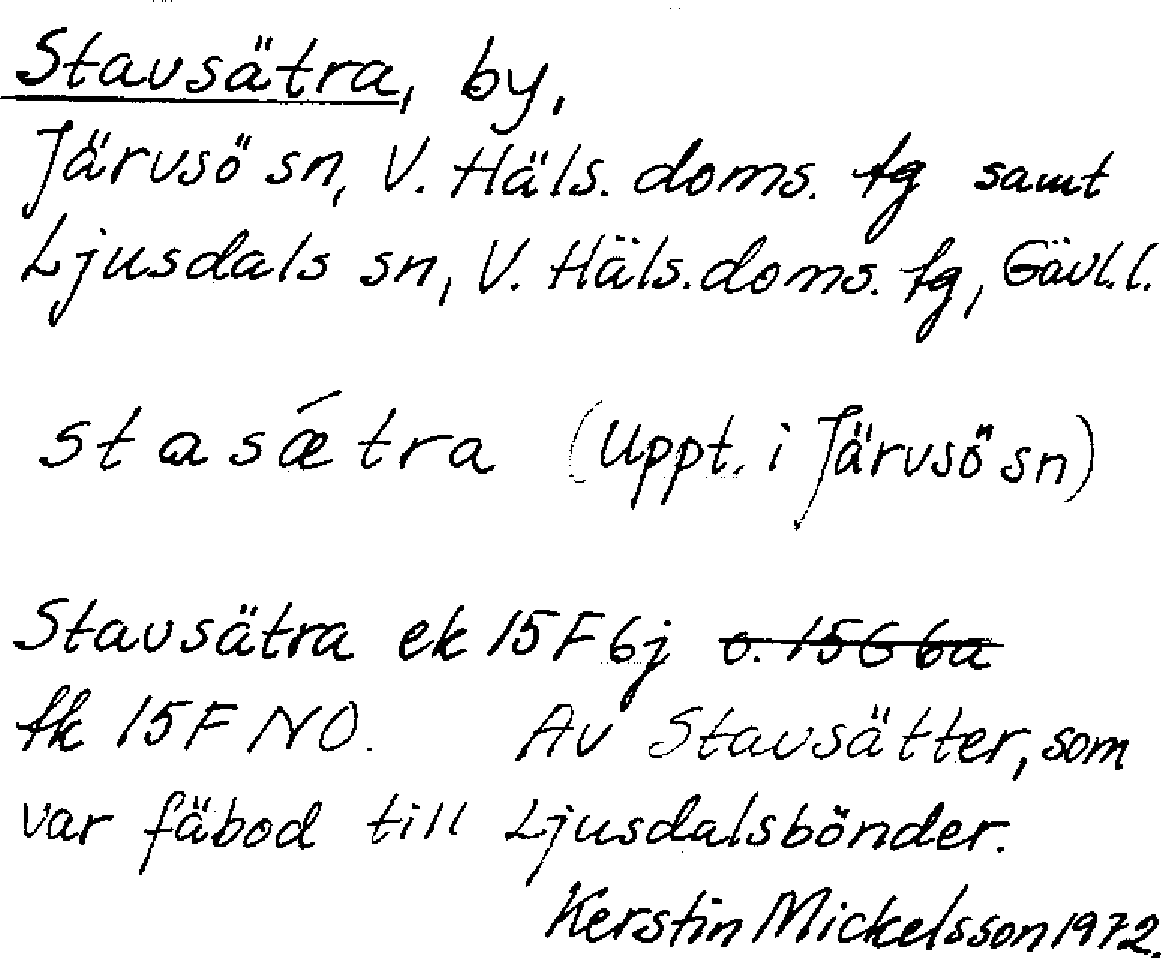 Stavsätra, by,
Järvsö sn, V. Häls. doms. tg samt
Ljusdals sn, V. Häls. doms. tg, Gävl. l.
stasǽtra (Uppt. i Järvsö sn)
Stavsätra ek 15F6j o. 15G6a
tk 15F NO. Av Stavsätter, som
var fäbod till Ljusdalsbönder.
Kerstin Mickelsson 1972.